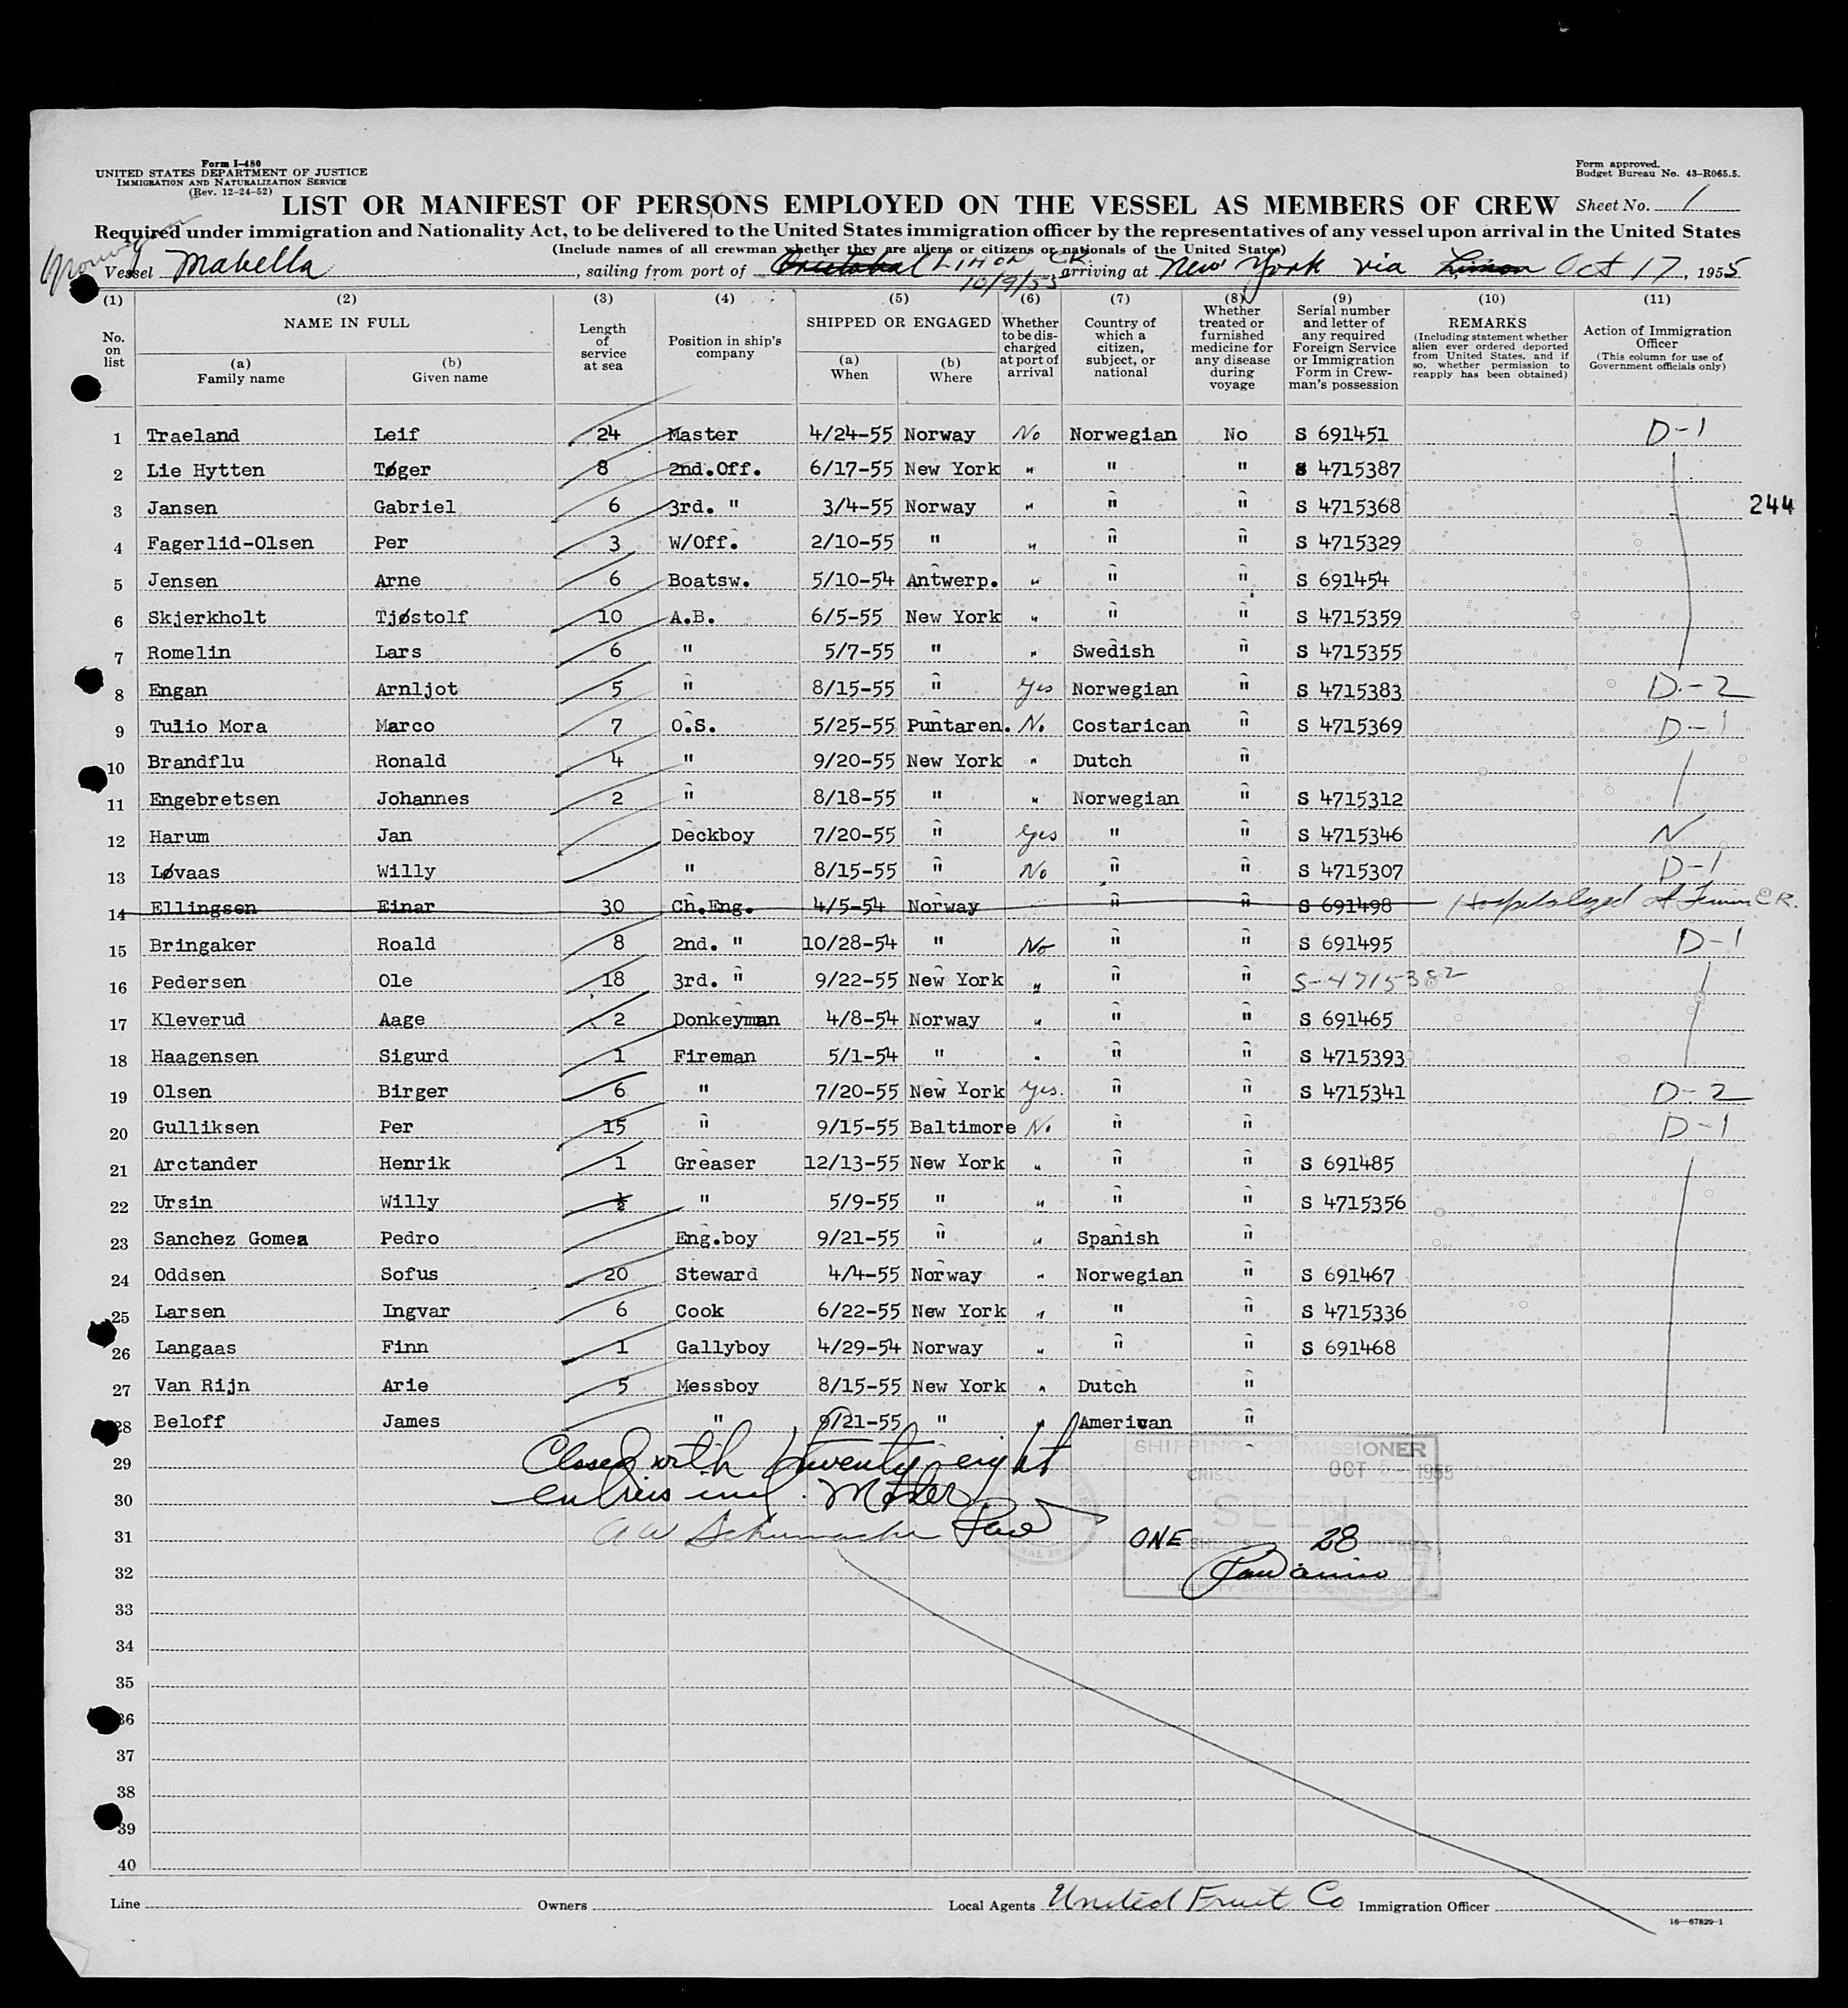 Form I-480
UNITED STATES DEPARTMENT OF JUSTICE
IMMIGRATION AND NATURALIZATION SERVICE
(Rev. 12-24-52)
Form approved.
Budget Bureau No. 43-R065.5.
LIST OR MANIFEST OF PERSONS EMPLOYED ON THE VESSEL AS MEMBERS OF CREW Sheet No. 1
Required under immigration and Nationality Act, to be delivered to the United States immigration officer by the representatives of any vessel upon arrival in the United States
(Include names of all crewman whether they are aliens or citizens or nationals of the United States)
Vessel Mabella, sailing from port of Cristobal LIMON CR, arriving at New York via Limon Oct 17, 1955
10/9/55
(1) (2) (3) (4) (5) (6) (7) (8) (9) (10) (11)
No. on list
NAME IN FULL
(a) Family name
(b) Given name
Length of service at sea
Position in ship's company
SHIPPED OR ENGAGED
(a) When
(b) Where
Whether to be discharged at port of arrival
Country of which a citizen, subject, or national
Whether treated or furnished medicine for any disease during voyage
Serial number and letter of any required Foreign Service or Immigration Form in Crewman's possession
REMARKS
(Including statement whether alien ever ordered deported from United States, and if so, whether permission to reapply has been obtained)
Action of Immigration Officer
(This column for use of Government officials only)
1 Traeland Leif 24 Master 4/24-55 Norway No Norwegian No S 691451 D-1
2 Lie Hytten Tøger 8 2nd.Off. 6/17-55 New York " " " S 4715387
3 Jansen Gabriel 6 3rd. " 3/4-55 Norway " " " S 4715368 244
4 Fagerlid-Olsen Per 3 W/Off. 2/10-55 " " " " S 4715329
5 Jensen Arne 6 Boatsw. 5/10-54 Antwerp. " " " S 691454
6 Skjerkholt Tjøstolf 10 A.B. 6/5-55 New York " " " S 4715359
7 Romelin Lars 6 " 5/7-55 " " Swedish " S 4715355
8 Engan Arnljot 5 " 8/15-55 " Yes Norwegian " S 4715383 D-2
9 Tulio Mora Marco 7 O.S. 5/25-55 Puntaren. No Costarican " S 4715369 D-1
10 Brandflu Ronald 4 " 9/20-55 New York " Dutch "
11 Engebretsen Johannes 2 " 8/18-55 " " Norwegian " S 4715312
12 Harum Jan Deckboy 7/20-55 " Yes " " S 4715346 N
13 Løvaas Willy " 8/15-55 " No " " S 4715307 D-1
14 Ellingsen Einar 30 Ch.Eng. 4/5-54 Norway " " S 691498 Hospitalized at C.R.
15 Bringaker Roald 8 2nd. " 10/28-54 " No " " S 691495 D-1
16 Pedersen Ole 18 3rd. " 9/22-55 New York " " " S-4715382
17 Kleverud Aage 2 Donkeyman 4/8-54 Norway " " " S 691465
18 Haagensen Sigurd 1 Fireman 5/1-54 " " " " S 4715393
19 Olsen Birger 6 " 7/20-55 New York Yes. " " S 4715341 D-2
20 Gulliksen Per 15 " 9/15-55 Baltimore No " " D-1
21 Arctander Henrik 1 Greaser 12/13-55 New York " " " S 691485
22 Ursin Willy ½ " 5/9-55 " " " " S 4715356
23 Sanchez Gomea Pedro Eng.boy 9/21-55 " " Spanish "
24 Oddsen Sofus 20 Steward 4/4-55 Norway " Norwegian " S 691467
25 Larsen Ingvar 6 Cook 6/22-55 New York " " " S 4715336
26 Langaas Finn 1 Gallyboy 4/29-54 Norway " " " S 691468
27 Van Rijn Arie 5 Messboy 8/15-55 New York " Dutch "
28 Beloff James " 9/21-55 " " American "
29 Closed with twenty eight
30 entries incl. Master
31 A W Schumacher
SHIPPING COMMISSIONER
OCT 5 1955
SEEN
ONE SHEETS 28 ENTRIES
DEPUTY SHIPPING COMMISSIONER
32
33
34
35
36
37
38
39
40
Line Owners Local Agents United Fruit Co Immigration Officer
16-67829-1